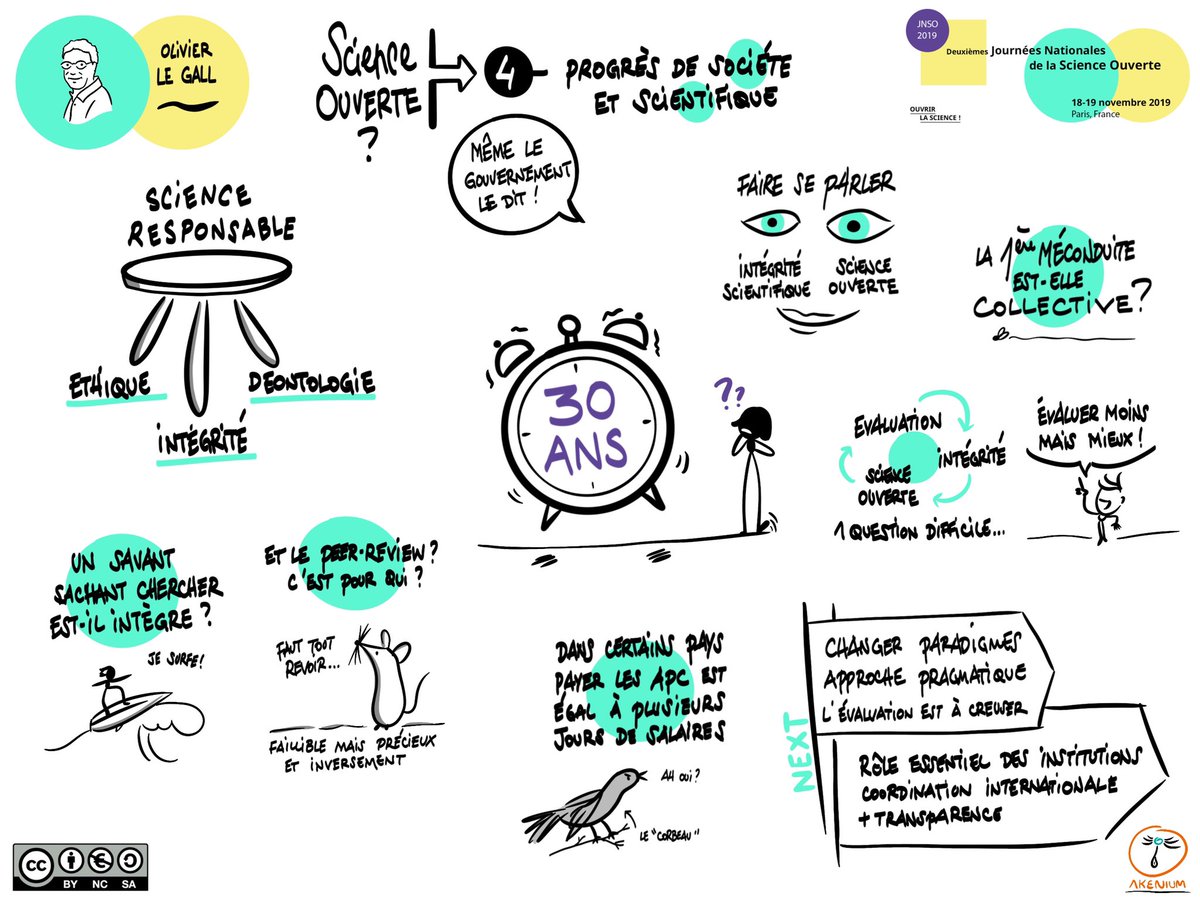 OLIVIER
LE GALL
Science
OUVERTE
?
4
PROGRÈS DE SOCIÉTE
ET SCIENTIFIQUE
JNSO
2019
Deuxièmes Journées Nationales
de la Science Ouverte
18-19 novembre 2019
Paris, France
OUVRIR
LA SCIENCE !
MÊME LE
GOUVERNEMENT
LE DIT !
SCIENCE
RESPONSABLE
ETHIQUE
DEONTOLOGIE
INTÉGRITÉ
FAIRE SE PARLER
INTÉGRITÉ
SCIENTIFIQUE
SCIENCE
OUVERTE
LA 1ère MÉCONDUITE
EST-ELLE
COLLECTIVE?
30
ANS
??
EVALUATION
INTÉGRITÉ
SCIENCE
OUVERTE
1 QUESTION DIFFICILE...
ÉVALUER MOINS
MAIS MIEUX !
UN SAVANT
SACHANT CHERCHER
EST-IL INTÈGRE ?
JE SURFE!
ET LE PEER-REVIEW ?
C'EST POUR QUI ?
FAUT TOUT
REVOIR...
FAILLIBLE MAIS PRÉCIEUX
ET INVERSEMENT
DANS CERTAINS PAYS
PAYER LES APC EST
ÉGAL À PLUSIEURS
JOURS DE SALAIRES
AH OUI ?
LE "CORBEAU"
NEXT
CHANGER PARADIGMES
APPROCHE PRAGMATIQUE
L'ÉVALUATION EST À CREUSER
RÔLE ESSENTIEL DES INSTITUTIONS
COORDINATION INTERNATIONALE
+ TRANSPARENCE
CC
BY NC SA
AKENIUM